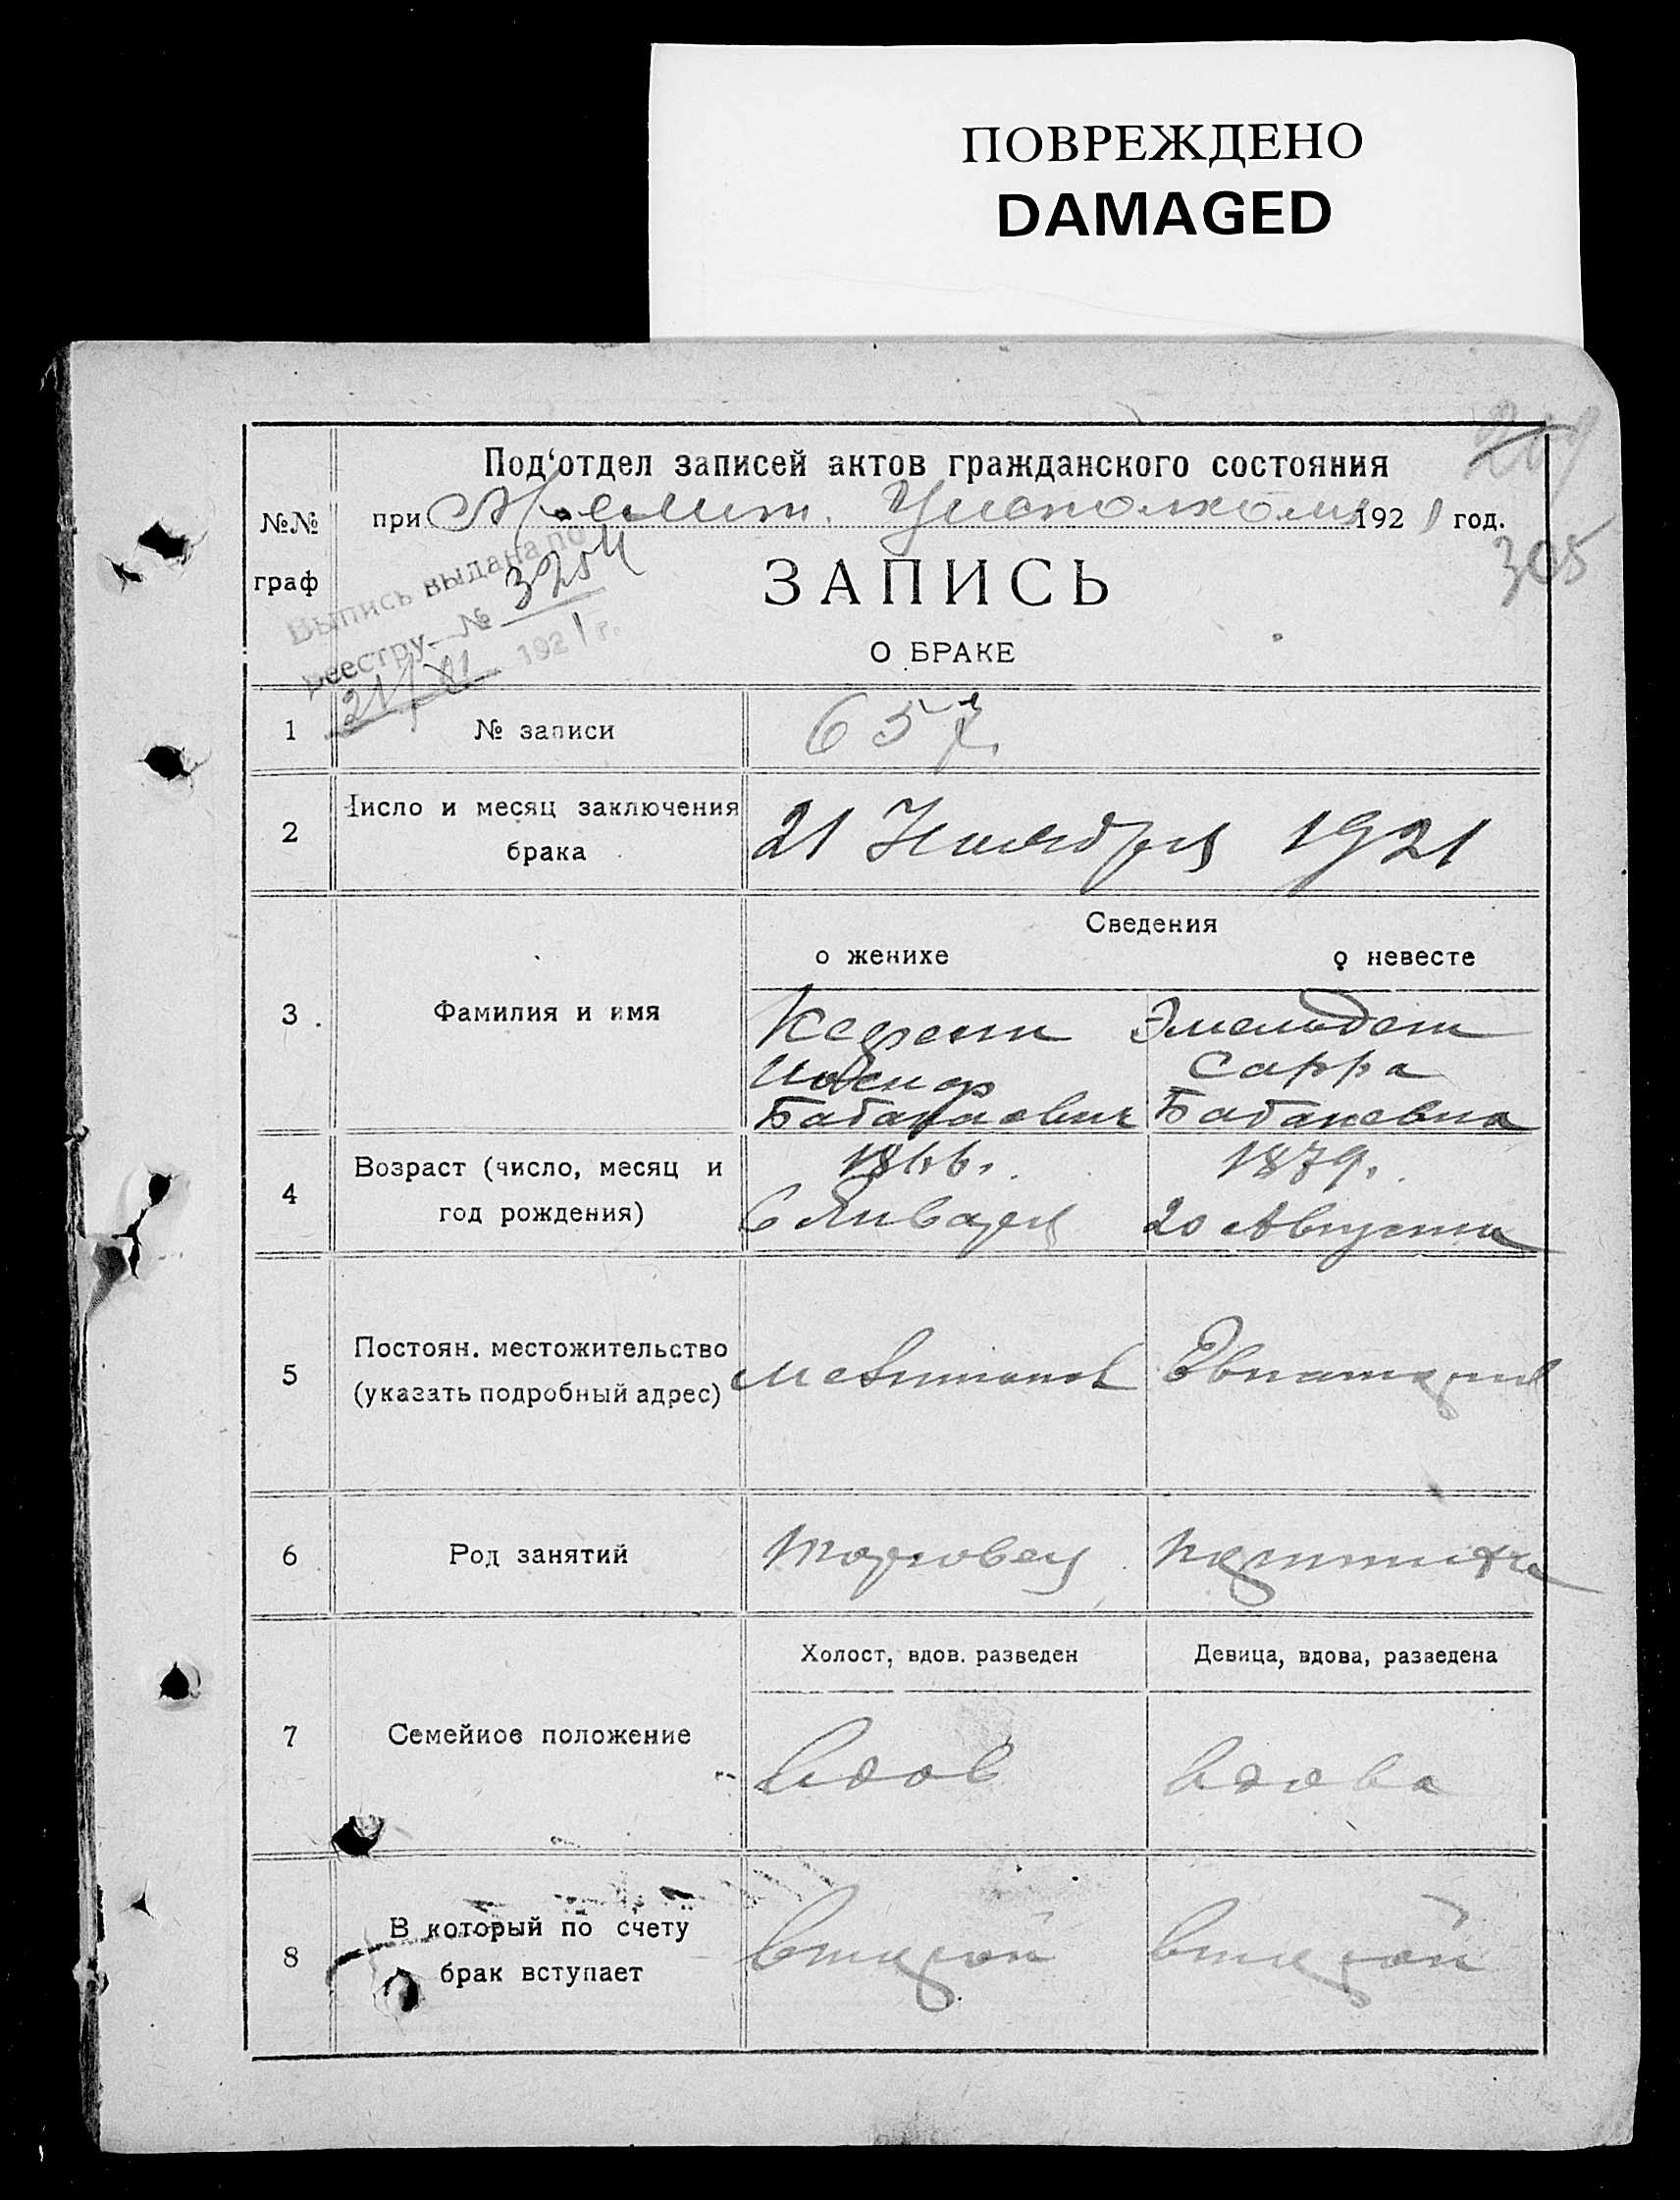 ПОВРЕЖДЕНО
DAMAGED
209
№№
граф
Под‘отдел записей актов гражданского состояния
при Исполкоме 1921 год.
305
Выпись выдана по
реестру № 3254
21/XI 1921 г.
ЗАПИСЬ
О БРАКЕ
1 № записи 657
2 Число и месяц заключения
брака
21 Ноября 1921
Сведения
о женихе о невесте
3 Фамилия и имя
Эмельдеш
Сарра
Бабакаевич Бабакевна
4 Возраст (число, месяц и
год рождения)
1866. 1879.
6 Января 20 Августа
5 Постоян. местожительство
(указать подробный адрес)
Евпатория
6 Род занятий
Торговец
7 Семейное положение
Холост, вдов. разведен Девица, вдова, разведена
вдов вдова
8 В который по счету
брак вступает
второй второй